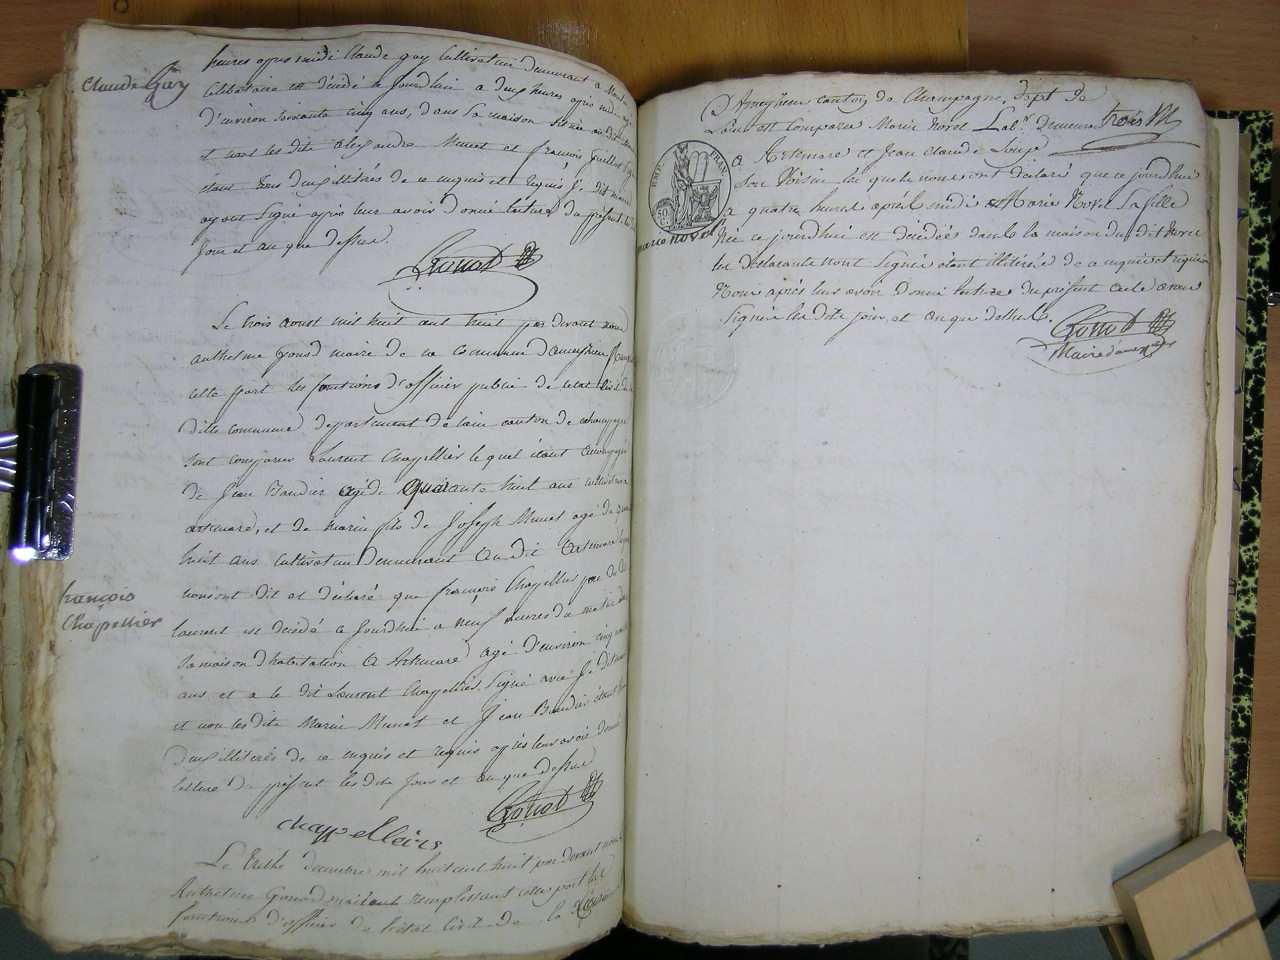 heures apres midi Claude gay Cultivateur demeurant a
Claude Gay
Celibataire est décédé ce jourdhui a deux heures apres midi agé
d'environ soixante cinq ans, dans sa maison située au dit
et non les dits alexandre Munet et françois Guillot
étant tous deux illitérés de ce enquis et requis je dit maire
ayant Signé apres leur avoir donné lecture du présent les
jour et an que dessus.
Gonod
Le trois aoust mil huit cent huit par devant nous
anthelme gonod maire de la Commune d'ameyzieu
cette part les fonctions d'officier public de l'etat civil de
ditte commune departement de l'ain canton de champagne
sont comparus Laurent Chapellier le quel étant accompagné
de Jean Baudin agé de quarante huit ans cultivateur
artemare, et de marin fils de Joseph Munet agé de
huit ans cultivateur demeurant au dit Artemare
nous ont dit et déclaré que françois Chapellier pere du dit
françois
Chapellier
laurent est décédé ce jourdhui a neuf heures du matin dans
sa maison d'habitation a Artemare agé d'environ cinq
ans et a le dit Laurent Chapellier Signé avec je dit maire
et non les dits Marin Munet et Jean Baudin étant tous
deux illiterés de ce enquis et requis apres leur avoir donné
lecture du présent les dits jour et an que dessus
Gonod
chappelleirs
Le Treize decembre mil huit cent huit par devant nous
Anthelme Gonod maire remplissant cette part les
fonctions d'officier de l'état Civil de la Commune
D'Ameyzieu canton de Champagne, dept de
L'ain est Comparu Marin Novel Labr. Demeurant
trois
EMP. FRAN.
50
a Artemare et Jean Claude
son Voisin les quels nous ont déclaré que ce jourdhui
a quatre heures apres midi Marie Novel sa fille
marie novel
née ce jourdhui est décédée dans la maison du dit Novel
les déclarants nont Signé étant illitérés de ce enquis et requis
Nous après leur avoir donné lecture du présent acte avons
Signé les dits jour, et an que dessus.
Gonod
Maire d'ameyzieu